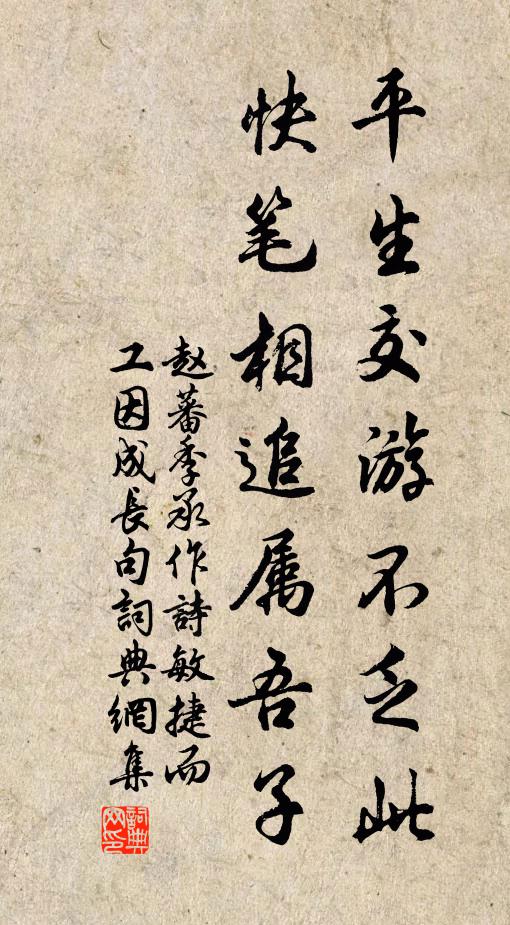 平生交游不乏此
快笔相追属吾子
赵蕃季承作詩敏捷而
工因成長句詞典網集
詞典
网印